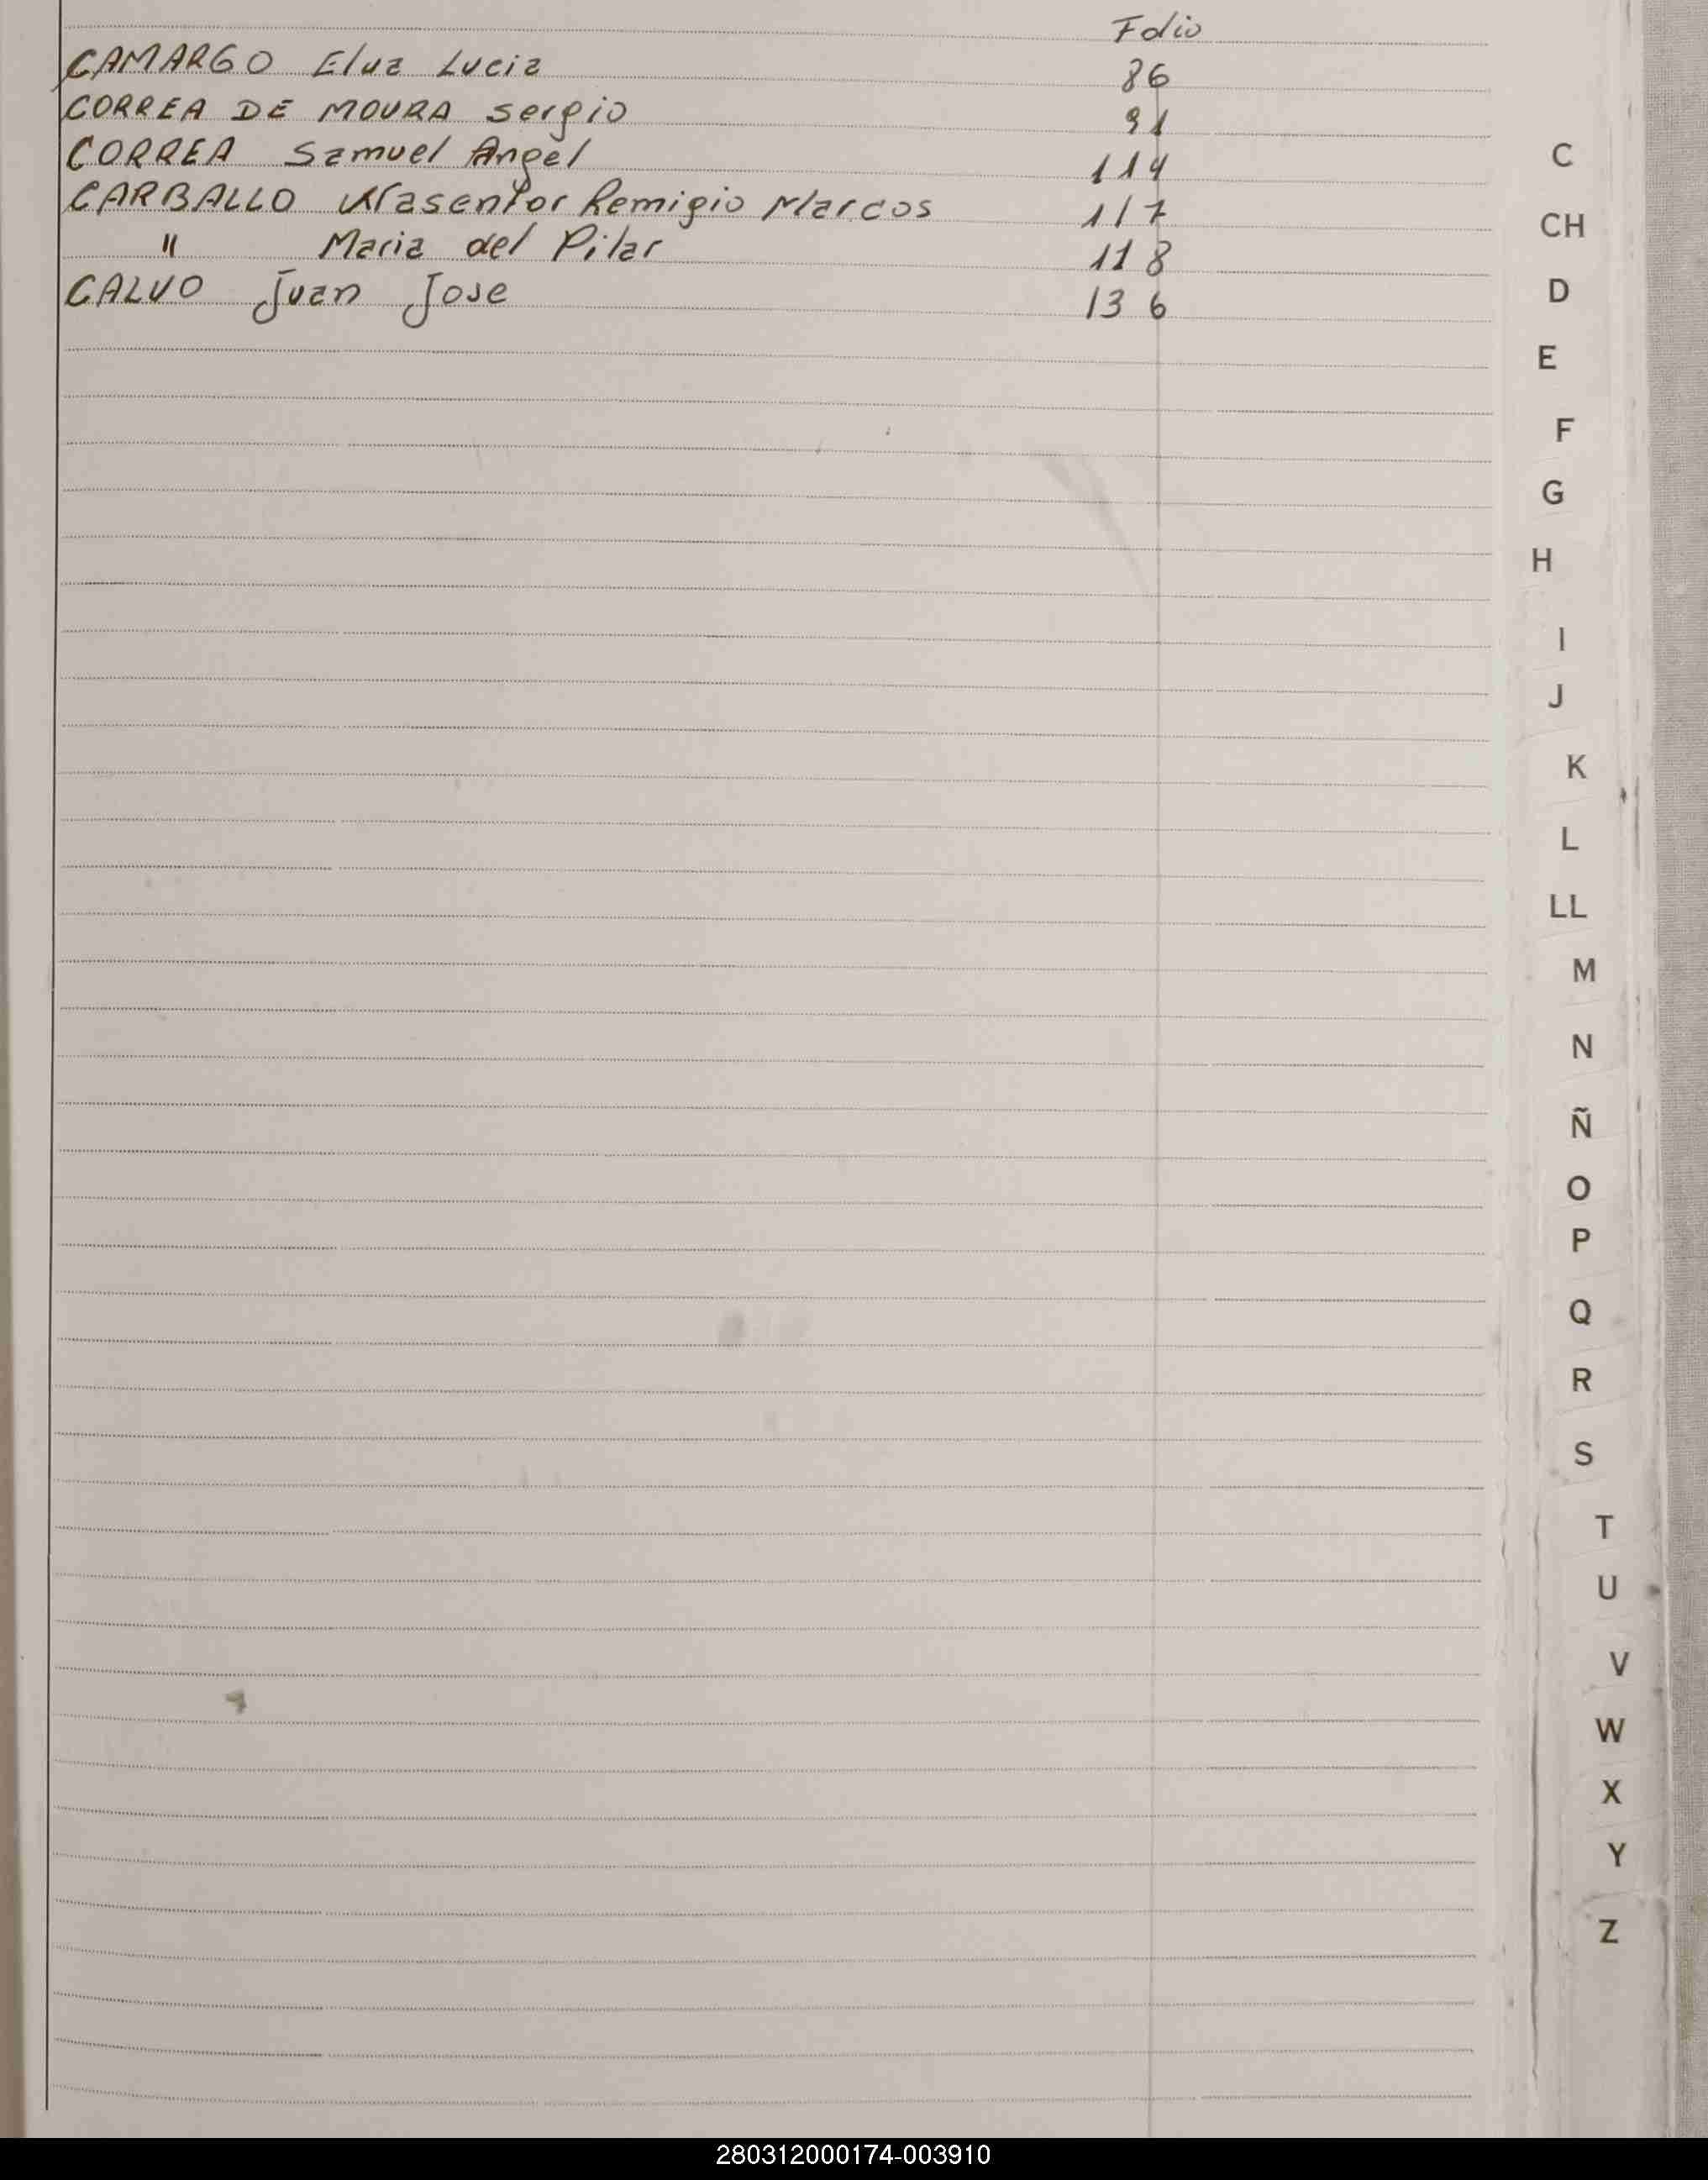 Folio
CAMARGO Elua Lucia 86
CORREA DE MOURA Sergio 91
CORREA Samuel Angel 114
CARBALLO Remigio Marcos 117
" Maria del Pilar 118
CALVO Juan Jose 136
C
CH
D
E
F
G
H
I
J
K
L
LL
M
N
Ñ
O
P
Q
R
S
T
U
V
W
X
Y
Z
280312000174-003910